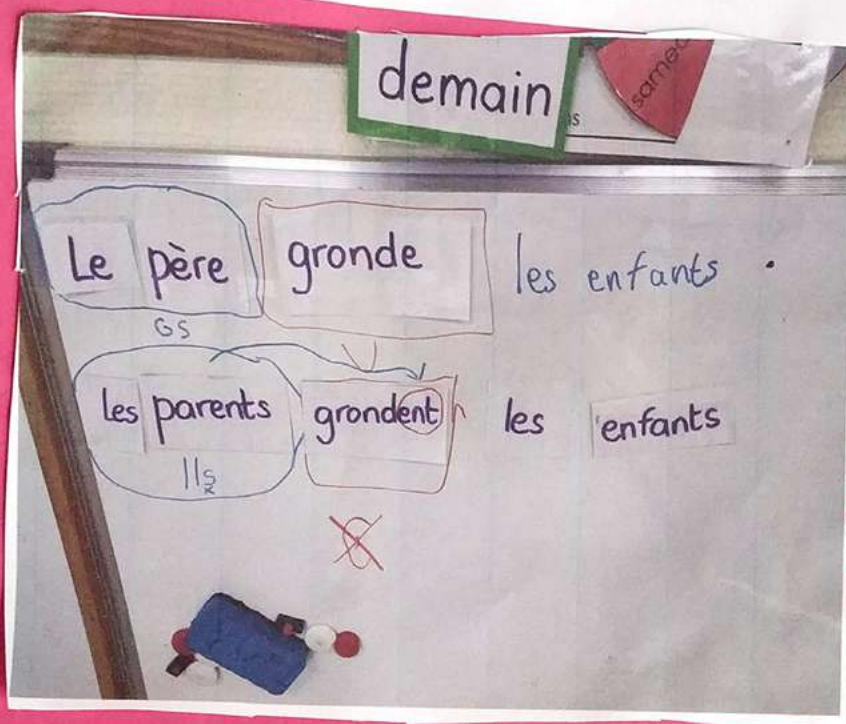 demain
samed
ns
Le père gronde les enfants.
GS
V
les parents grondent les enfants
Ils